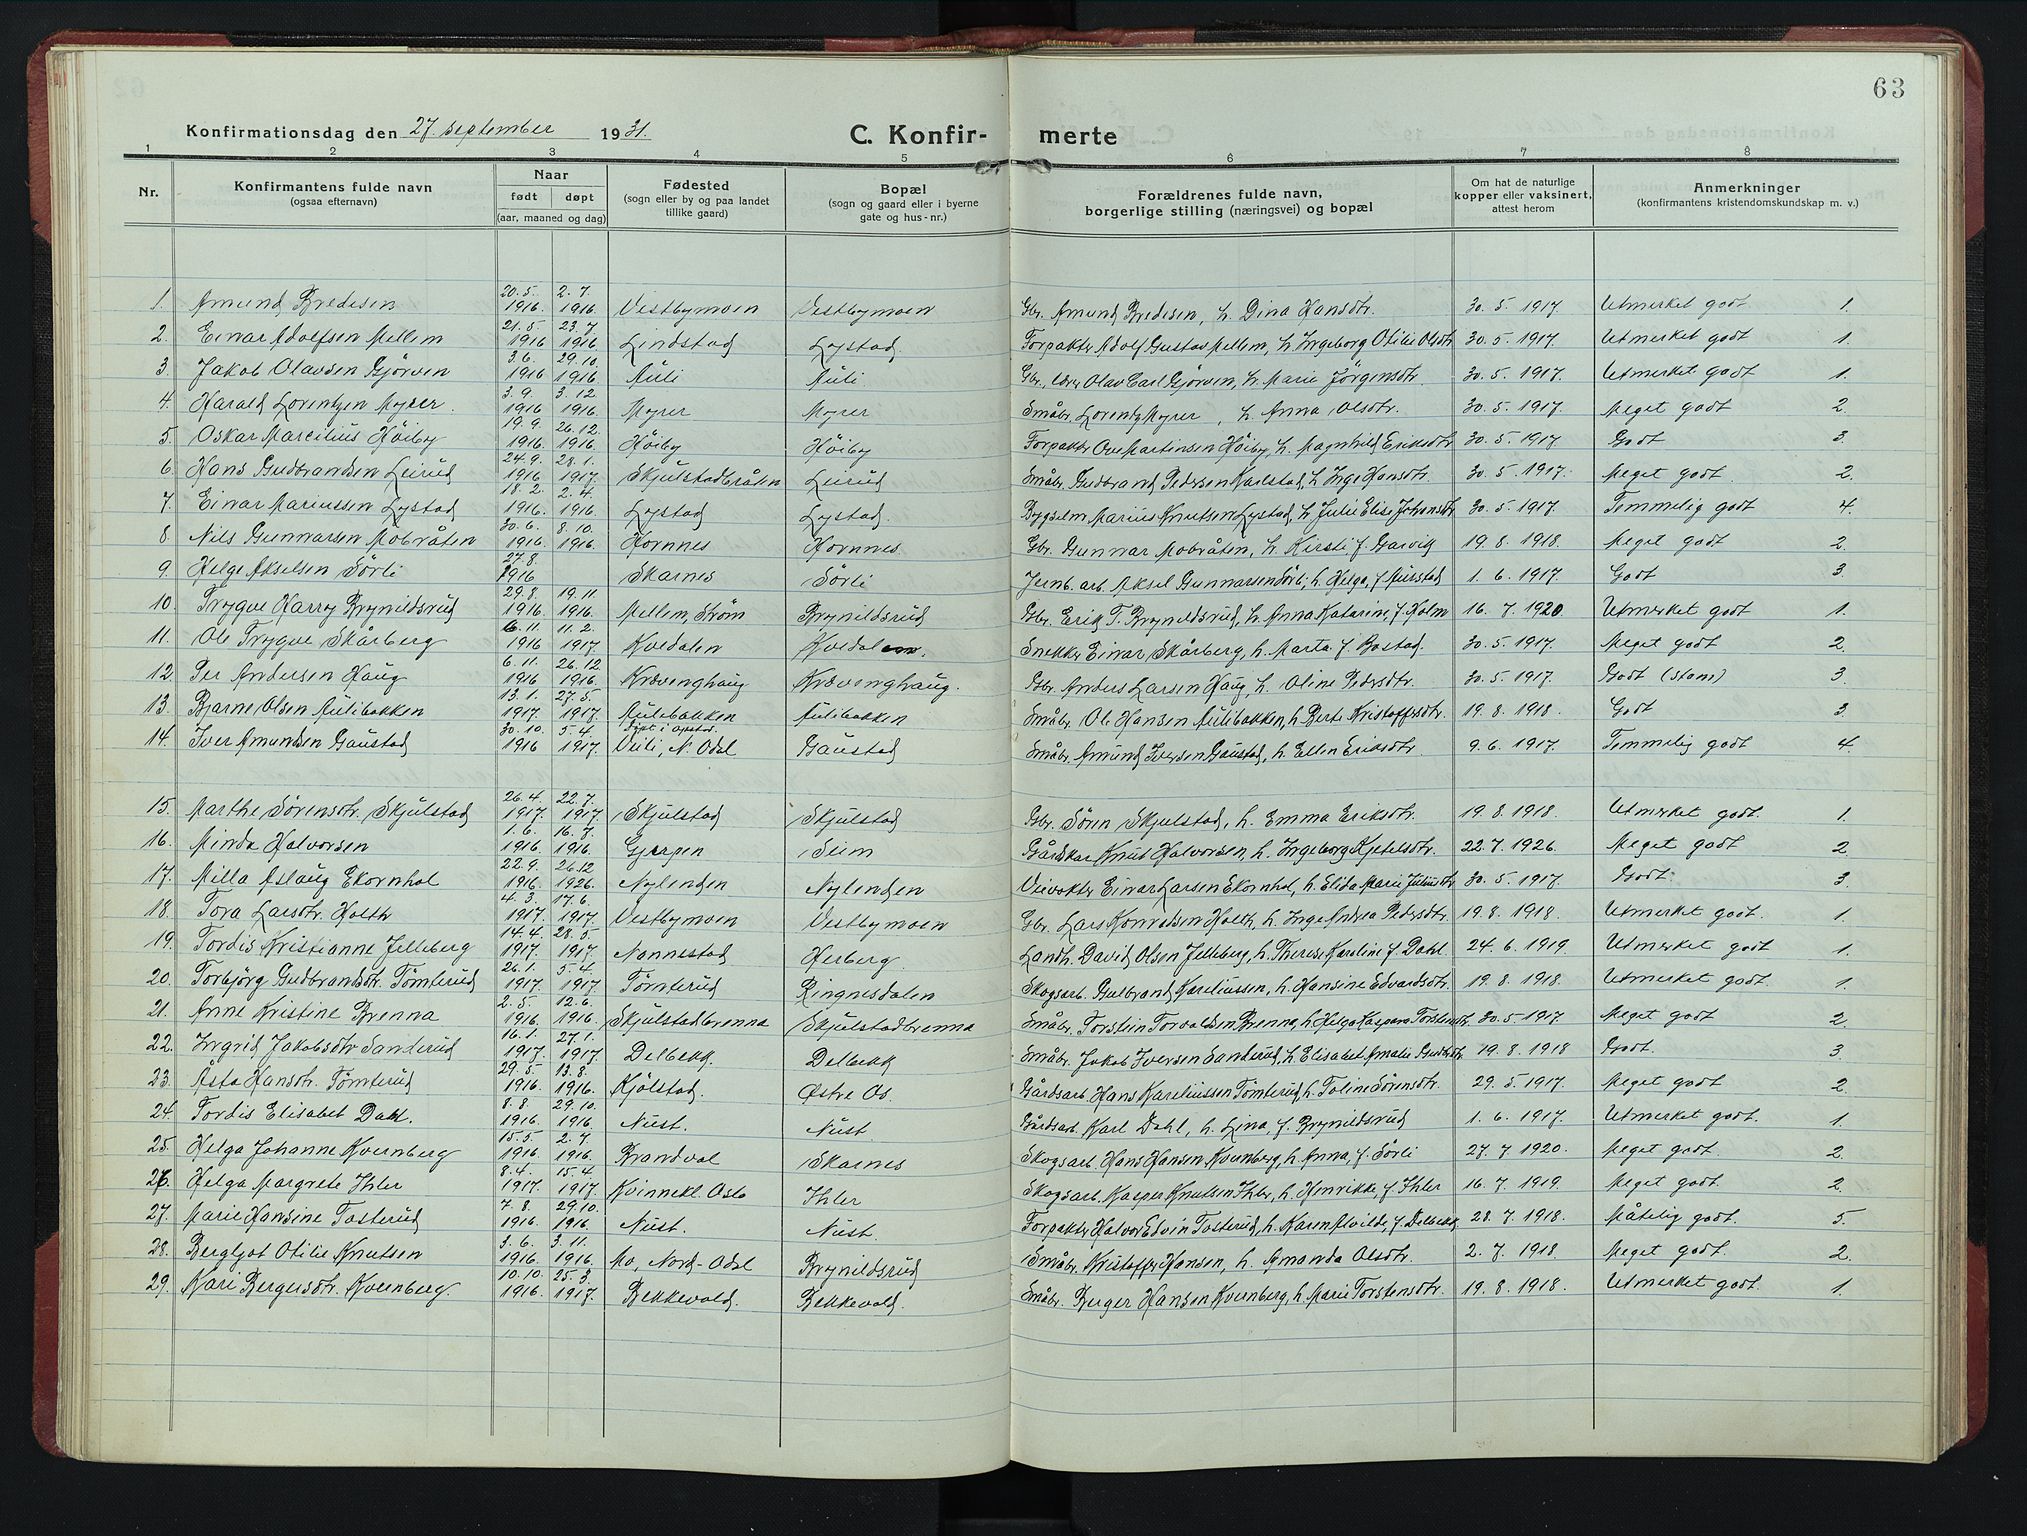 63
Konfirmationsdag den 27. september 1931. C. Konfir- merte
1 2 3 4 5 6 7 8
Nr. Konfirmantens fulde navn (ogsaa efternavn) Naar født døpt (aar, maaned og dag) Fødested (sogn eller by og paa landet tillike gaard) Bopæl (sogn og gaard eller i byerne gate og hus-nr.) Forældrenes fulde navn, borgerlige stilling (næringsvei) og bopæl Om hat de naturlige kopper eller vaksinert, attest herom Anmerkninger (konfirmantens kristendomskundskap m. v.)
1. Amund Bredesen 20.5. 1916 2.7. 1916. Vestbymoen Vestbymoen Gbr. Amund Bredesen, h. Dina Hansdtr. 30. 5. 1917. Utmerket godt 1.
2. Einar Adolfsen Mellem 21.5 1916 23.7. 1916 Lindstad Lystad. Forpakter Adolf Gustav Mellem, h. Ingeborg Otilie Olsdtr 30. 5. 1917. Utmerket godt 1.
3. Jakob Olavsen Gjörven 3.6. 1916 29.10. 1916 Auli Auli Gbr., lærer Olav Carl Gjörven, h. Marie Jörgensdtr. 30. 5. 1917. Utmerket godt 1.
4. Harald Lorentzen Myrer. 3.9. 1916 3.12 1916. Myrer Myrer Småbr. Lorentz Myrer, h. Anna Olsdtr. 30. 5. 1917. Meget godt 2.
5. Oskar Marcilius Höiby 19.9. 1916 26.12. 1916. Höiby Höiby Forpakter Ove Martinsen Höiby, h. Magnhild Eriksdtr 30. 5. 1917 Godt 3.
6. Hans Gudbrandsen Leirud 24.9. 1916 28.1. 1917. Skjulstadbråten Leirud Småbr. Gudbrand Pedersen Karlstad, h Inge Hansdtr. 30. 5. 1917. Meget godt 2.
7. Einar Mariussen Lystad 18.2. 1916. 2.4. 1916 Lystad Lystad. Bygselm. Marius Knutsen Lystad, h Julie Elise Johansdtr 30. 5. 1917. Temmelig godt 4.
8. Nils Gunnarsen Mobråten 30.6. 1916 8.10. 1916. Hornnes Hornnes Gbr. Gunnar Mobråten, h. Kirsti f. Garvik 19. 8. 1918. Meget godt 2.
9. Helge Akselsen Sörli 27.8. 1916 Skarnes Sörli Jernb. arb. Aksel Gunnarsen Sörli, h. Helga, f. Aurstad 1. 6. 1917. Godt 3.
10. Trygve Harry Brynildsrud 29.8. 1916 19.11. 1916. Mellem, Ström Brynildsrud Gbr. Erik T. Brynildsrud, h. Anna Katarine, f. Holm 16. 7. 1920 Utmerket godt 1.
11. Ole Trygve Skårberg 6.11. 1916 11.2. 1917. Kvedalen Kvedalen. Snekker Einar Skårberg, h. Marta f. Bostad. 30. 5. 1917. Meget godt 2.
12 Per Andersen Haug 6.11. 1916 26.12 1916. Krævenghaug Krævenghaug. Gbr. Anders Larsen Haug, h. Oline Pedersdtr. 30. 5. 1917. Godt (stam) 3.
13. Bjarne Olsen Aulibakken 13.1. 1917. 27.5. 1917. Aulibakken Aulibakken Småbr. Ole Hansen Aulibakken, h. Berte Kristoffersdtr. 19. 8. 1918. Godt 3.
14. Iver Amundsen Gaustad 30.10. 1916 5.4. 1917. Veili, N. Odal Gaustad Småbr. Amund Iversen Gaustad, h. Ellen Eriksdtr. 9. 6. 1917. Temmelig godt 4.
15. Marthe Sörensdtr. Skjulstad 26.4. 1917. 22.7. 1917 Skjulstad Skjulstad Gbr. Sören Skjulstad, h. Emma Eriksdtr. 19. 8. 1918. Utmerket godt. 1.
16. Minda Halvorsen 1.6. 1916 16.7. 1916. Gjerpen Seim Gårdskar Knut Halvorsen, h. Ingeborg Kjetelsdtr. 22. 7. 1926. Meget godt 2.
17. Milla Aslaug Ekornhol 22.9. 1916. 26.12 1926. Nylenden Nylenden Veivokter Einar Larsen Ekornhol, h. Elida Marie Juliusdtr 30. 5. 1917. Godt. 3.
18. Tora Larsdtr. Holth 4.3. 1917. 17.6. 1917. Vestbymoen Vestbymoen Gbr. Lars Konradsen Holth, h. Inge Andrea Pedersdtr. 19. 8. 1918. Utmerket godt. 1.
19. Tordis Kristianne Jelleberg 14.4. 1917. 28.5 1917. Nannestad Herberg Landh. David Olsen Jelleberg, h. Therese Karoline f. Dahl. 24. 6. 1919 Utmerket godt 1.
20. Torbjörg Gudbrandsdtr. Tömterud 26.1. 1917. 5.4. 1917. Tömterud Ringnesdalen Skogsarb. Gulbrand Kareliussen, h. Hansine Edvardsdtr. 19. 8. 1918. Utmerket godt. 1.
21. Anne Kristine Brenna 2.5. 1916 12.6. 1916. Skjulstadbrenna Skjulstadbrenna Småbr. Torstein Torvaldsen Brenna, h. Helga Kaspara Torstensdtr. 30. 5. 1917. Meget godt 2.
22. Ingrid Jakobsdtr Sanderud 16.1. 1917. 27.1. 1917 Delbekk Delbekk Småbr. Jakob Iversen Sanderud, h. Elisabet Amalie Gudbr.dtr. 19. 8. 1918 Godt. 3.
23. Åsta Hansdtr. Tömterud 29.5. 1916. 13.8. 1916. Kjölstad. Østre Os. Gårdsarb. Hans Kareliussen Tömterud, h. Toline Sörensdtr. 29. 5. 1917. Meget godt 2.
24. Tordis Elisabet Dahl. 8.8. 1916. 29.10. 1916. Nust. Nust. Gårdsarb. Karl Dahl, h. Lina, f. Brynildsrud 1. 6. 1917. Utmerket godt. 1.
25. Helga Johanne Kvernberg 15.5. 1916. 2.7. 1916. Brandval Skarnes Skogsarb. Hans Hansen Kvernberg, h. Anna, f. Sörli 27. 7. 1920. Meget godt. 2.
26. Helga Margrete Ihler 8.4. 1917. 15.4 1917. Kvinnekl. Oslo Ihler Skogsarb. Kasper Knutsen Ihler, h. Henrikke, f. Ihler 16. 7. 1919. Meget godt. 2.
27. Marie Hansine Tosterud 7.8. 1916. 29.10. 1916. Nust. Nust. Forpakter Halvor Edvin Tosterud, h. Karen Alvilde, f. Delbekk 28. 7. 1918. Måtelig godt. 5.
28. Bergljot Otilie Knutsen 3.6. 1916. 3.11. 1916. Mo, Nord-Odal Brynildsrud Småbr. Kristoffer Hansen, h. Amanda Olsdtr. 2. 7. 1918. Meget godt. 2.
29. Kari Bergersdtr. Kvernberg. 10.10. 1916. 25.3. 1917. Bekkevold. Bekkevold. Småbr. Berger Hansen Kvernberg, h. Marie Torstensdtr. 19. 8. 1918. Utmerket godt. 1.